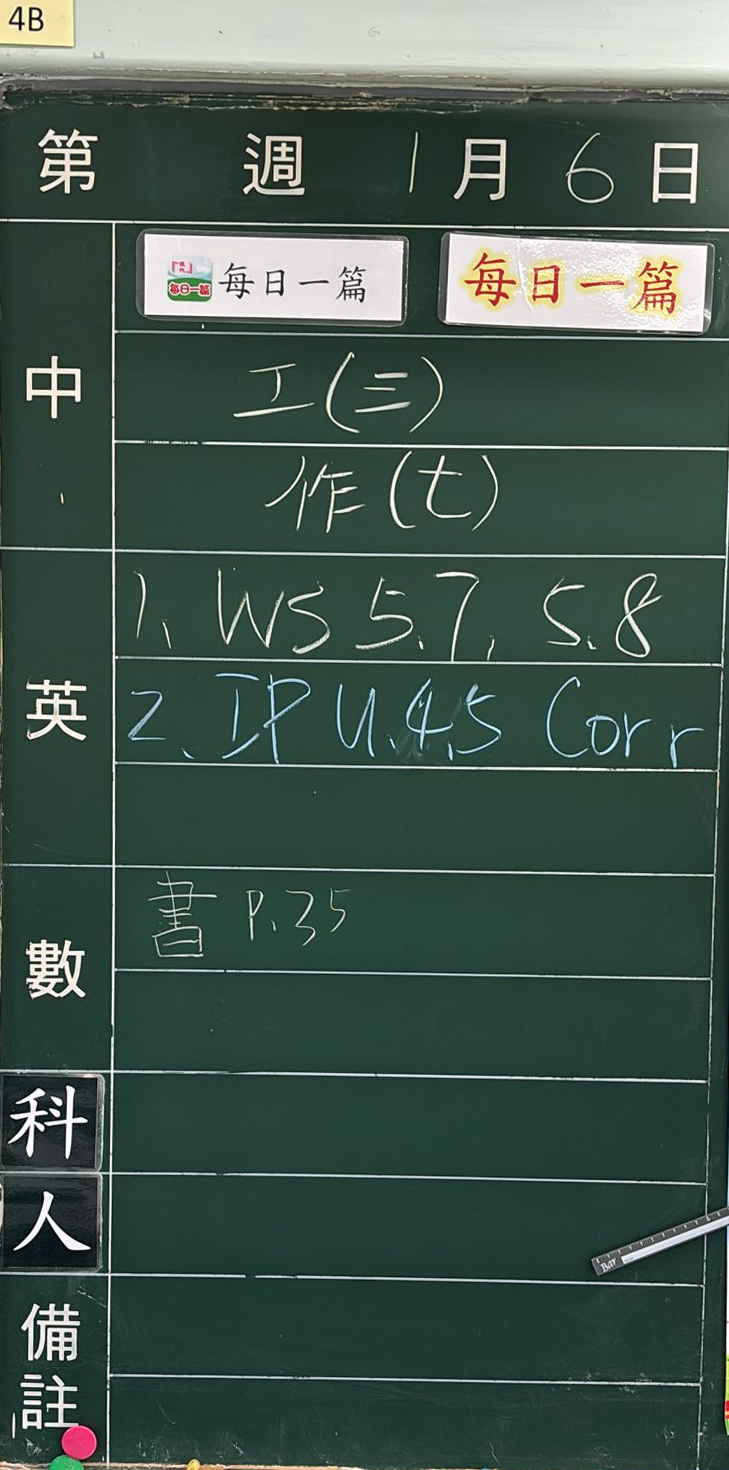 4B
第 週 1月6日
每日一篇 每日一篇 每日一篇
中
工(三)
作(七)
英
1、WS 5.7, 5.8
2、IP U.4,5 Corr
數
書 P.35
科
人
備註
Bar